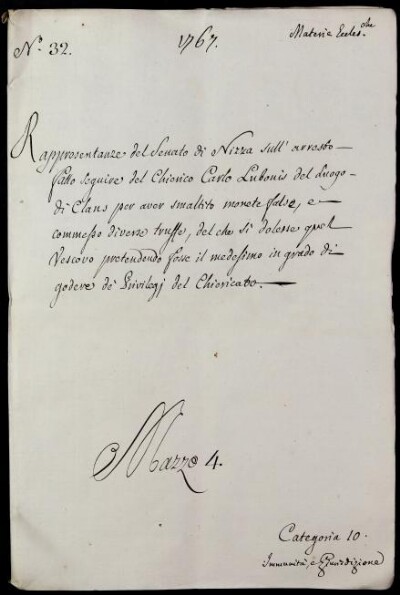 N.º 32.
1767.
Materia Eccles.che
Rapprosentanze del Senato di Nizza sull' arresto
fatto seguire del Chierico Carlo Lubonis del Luogo
di Clans per aver smaltito monete false, e
commesso diverse truffe, del che si dolesse quel
Vescovo pretendendo fosse il medesimo in grado di
godere de Privilegj del Chiericato.
Mazzo 4.
Categoria 10.
Immunità, e Giurisdizione